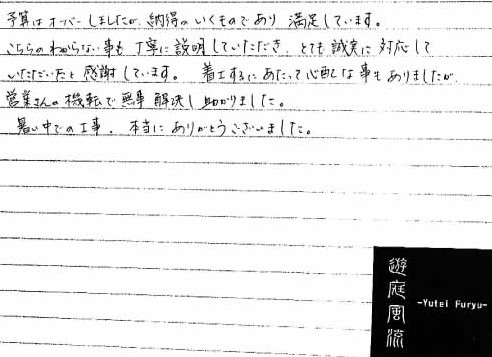 予算はオーバーしましたが、納得のいくものであり 満足しています。
こちらのわからない事も 丁寧に説明していただき、とても誠実に対応して
いただいたと感謝しています。 着工するにあたって心配な事もありましたが、
営業さんの機転で無事解決し助かりました。
暑い中での工事、本当にありがとうございました。
遊庭風流
-Yutei Furyu-